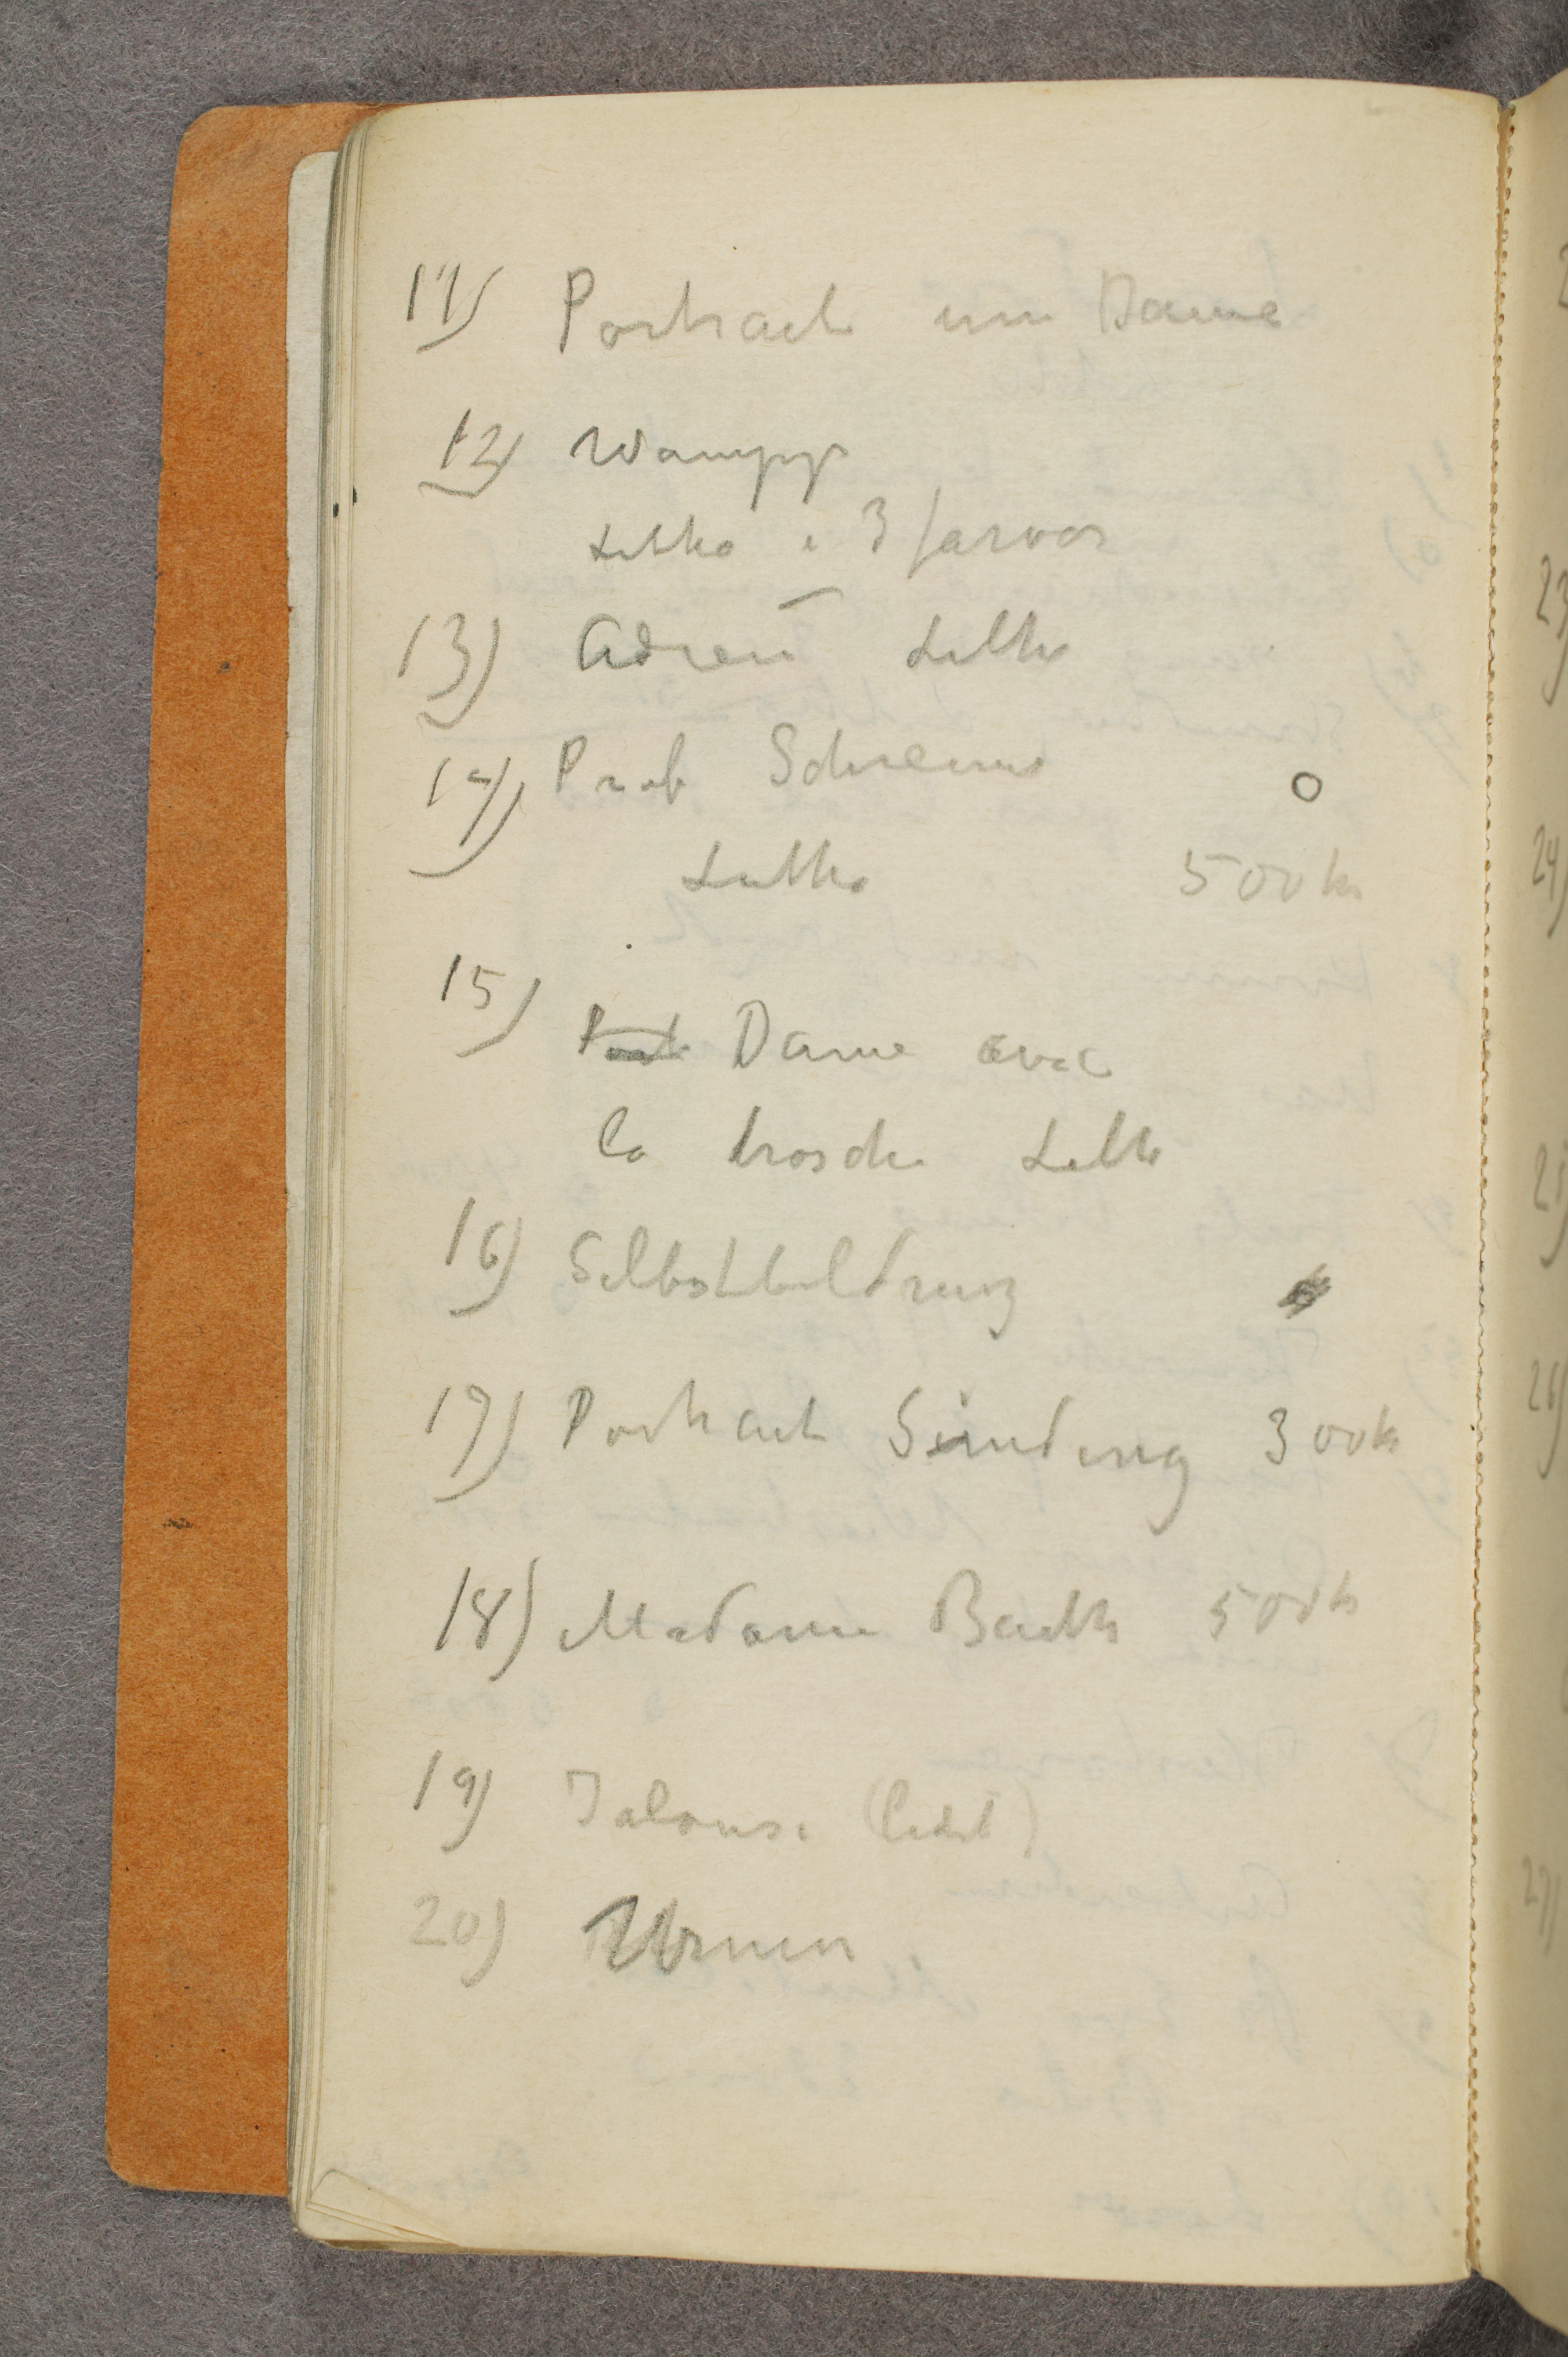 11) Portrait une Dame
12) Wampyr
Litho i 3 farver
13) Adieu Litho
14) Prof Schreiner
Litho 500 kr
15) Port Dame avec
la brosche Litho
16) Selbstbildnis
17) Portrait Sinding 300 kr
18) Madame Barth 500 kr
19) Jalousi (Lith)
20) Urnen